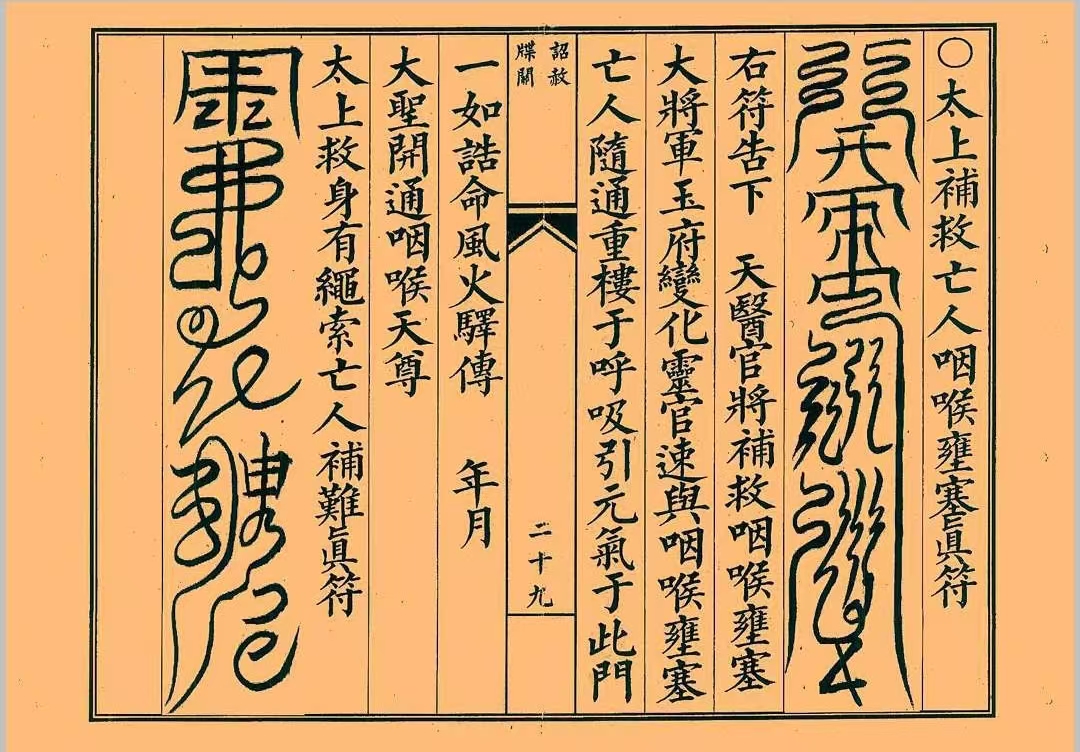 〇太上補救亡人咽喉壅塞眞符
右符告下　天醫官將補救咽喉壅塞
大將軍玉府變化靈官速與咽喉壅塞
亡人隨通重樓于呼吸引元氣于此門
詔赦
牒關
二十九
一如誥命風火驛傳　年月
大聖開通咽喉天尊
太上救身有繩索亡人補難眞符